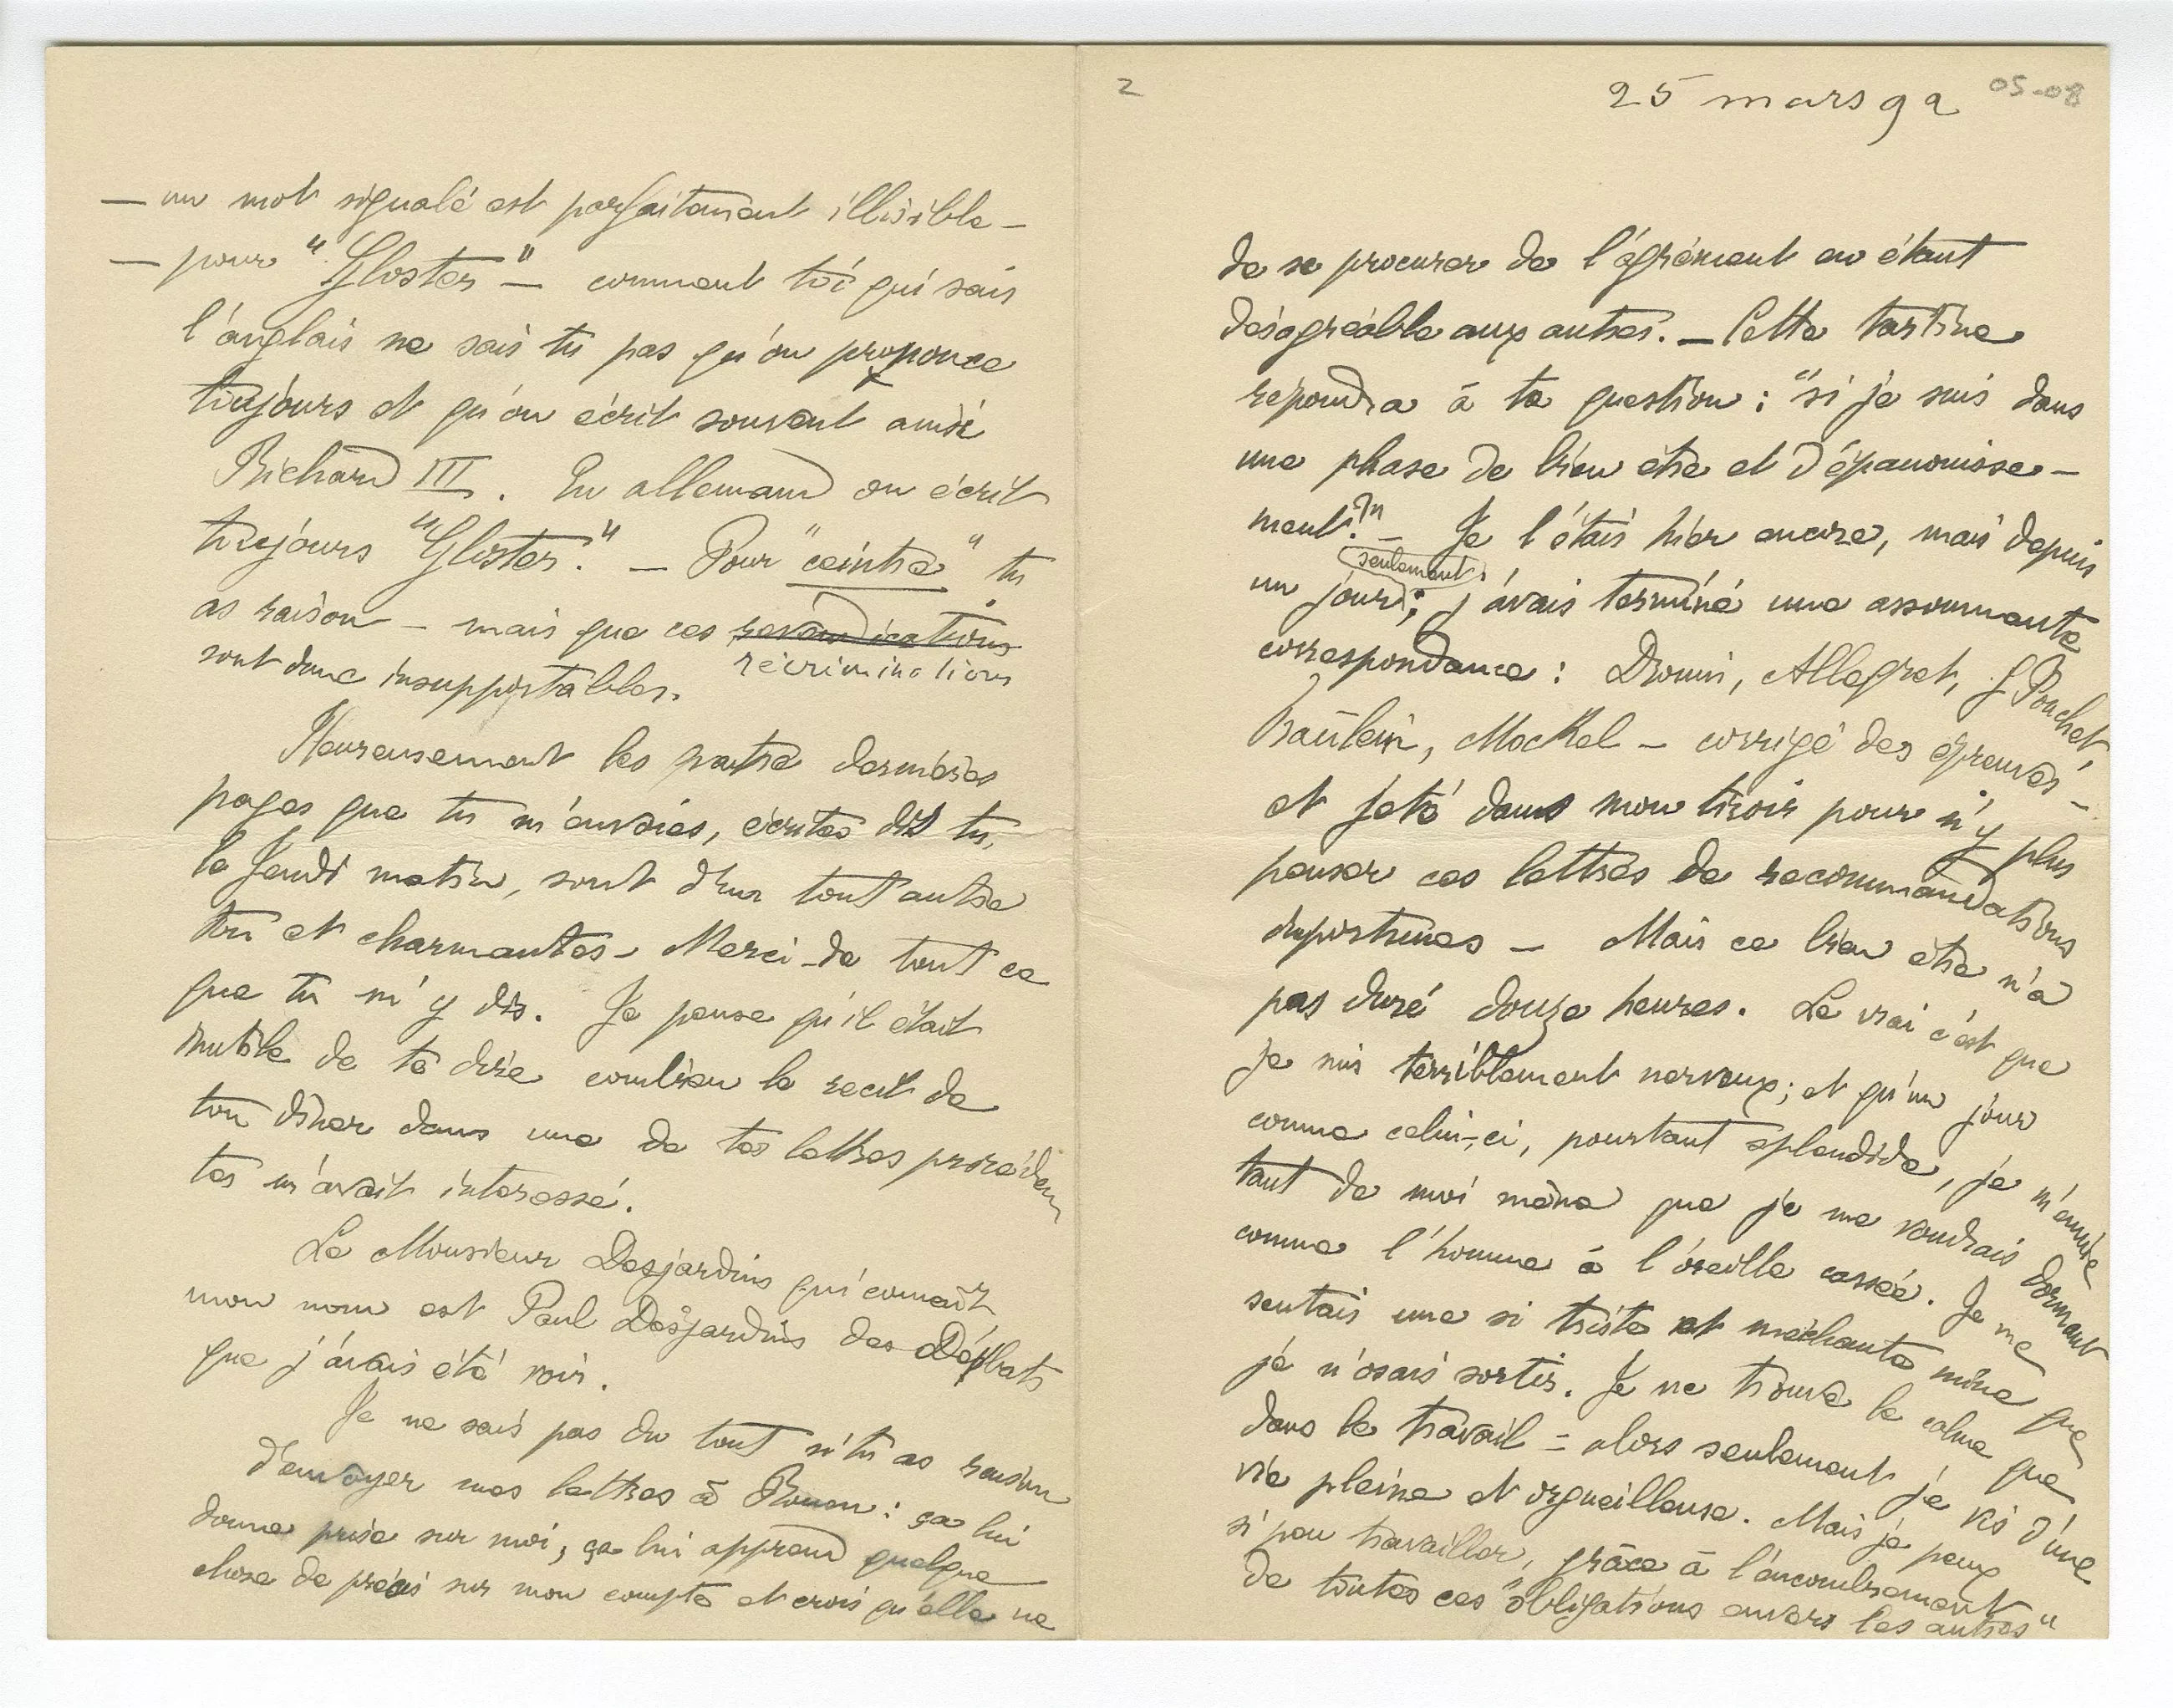 — un mot signalé est parfaitement illisible —
— pour "Gloster" — comment toi qui sais
l'anglais ne sais tu pas qu'on prononce
toujours et qu'on écrit souvent ainsi
Richard III. En allemand on écrit
toujours "Gloster." — Pour "ceintre" tu
as raison — mais que ces revendications
récriminations
sont donc insupportables.
Heureusement les quatre dernières
pages que tu m'envoies, écrites dis tu,
le Jeudi matin, sont d'un tout autre
ton et charmantes — Merci de tout ce
que tu m'y dis. Je pense qu'il était
inutile de te dire combien le recit de
ton dîner dans une de tes lettres préceden
tes m'avait interessé.
Le Monsieur Desjardins qui connaît
mon nom est Paul Desjardins des Débats
que j'avais été voir.
Je ne sais pas du tout si tu as raison
d'envoyer mes lettres à Rouen : ça lui
donne prise sur moi, ça lui apprend quelque
chose de précis sur mon compte et crois qu'elle ne
2
25 mars 92
05-08
de se procurer de l'agrément en étant
désagréable aux autres. — Cette tartine
repondra à ta question : "si je suis dans
une phase de bien être et d'épanouisse-
ment?" — Je l'étais hier encore, mais depuis
seulement
un jour; j'avais terminé une assommante
correspondance : Drouin, Allegret, G Pouchet,
Fraülein, Mockel — corrigé des épreuves —
et jeté dans mon tiroir pour n'y plus
penser ces lettres de recommandations
importunes — Mais ce bien être n'a
pas duré douze heures. Le vrai c'est que
je suis terriblement nerveux; et qu'un jour
comme celui-ci, pourtant splendide, je m'ennuie
tant de moi même que je me voudrais dormant
comme l'homme à l'oreille cassée. Je me
sentais une si triste et méchante mine que
je n'osais sortir. Je ne trouve le calme que
dans le travail = alors seulement je vis d'une
vie pleine et orgueilleuse. Mais je peux
si peu travailler, grâce à l'encombrement
de toutes ces "obligations envers les autres"